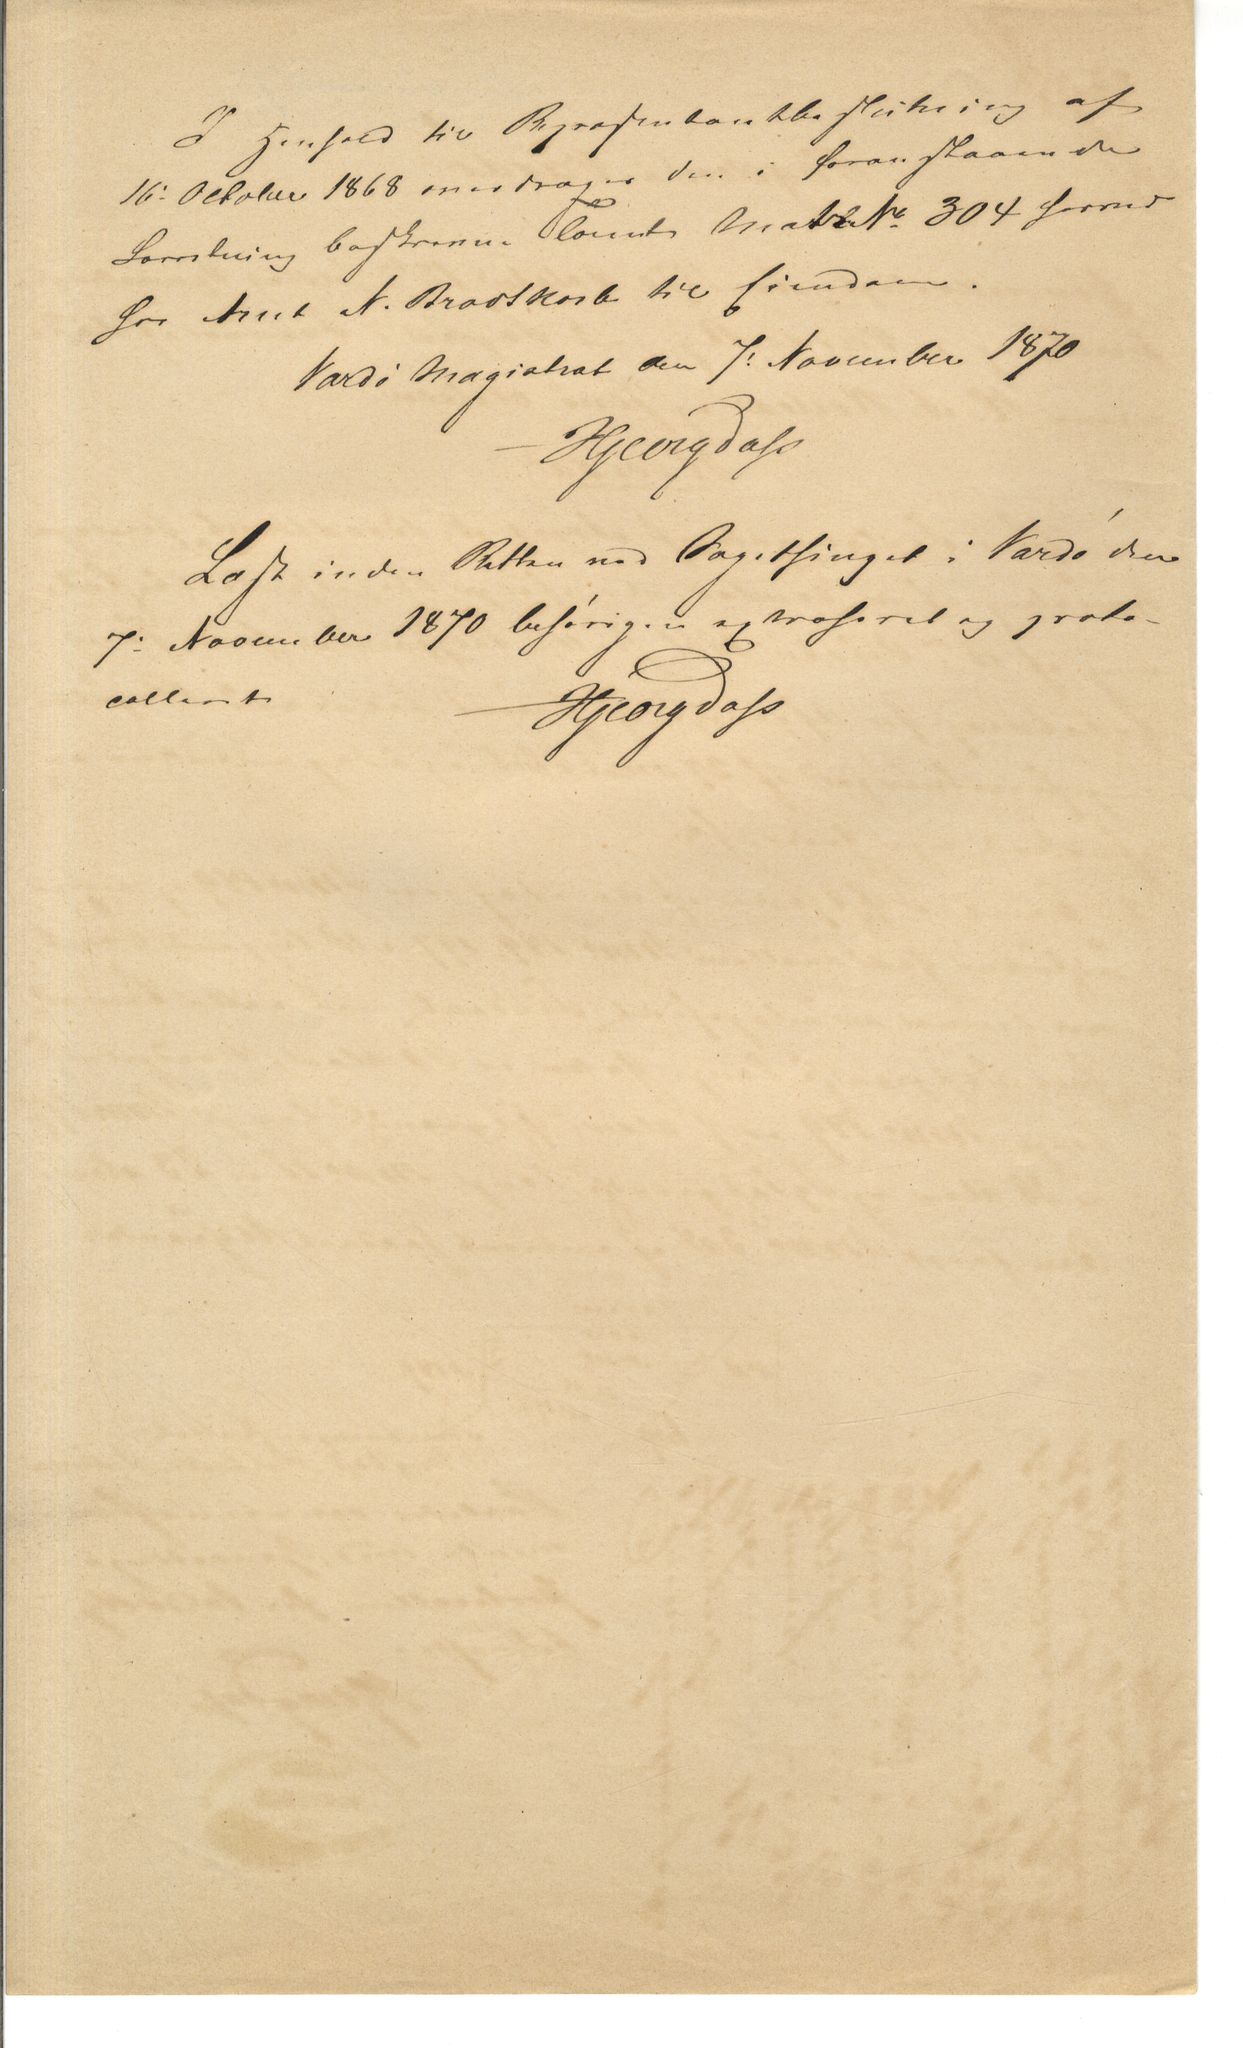 I Henhold til Repræsentantbeslutning af
16: October 1868 overdrages den i foranstaaende
Forretning beskrevne Tomt Matr No. 304 herved
hr Arnt N. Brodtkorb til Eiendom.
Vardö Magistrat den 7: November 1870
HGeorg Dass
Læst inden Retten ved Bagethinget i Vardö den
7: November 1870 behörigen extraheret og proto-
colleret
HGeorg Dass